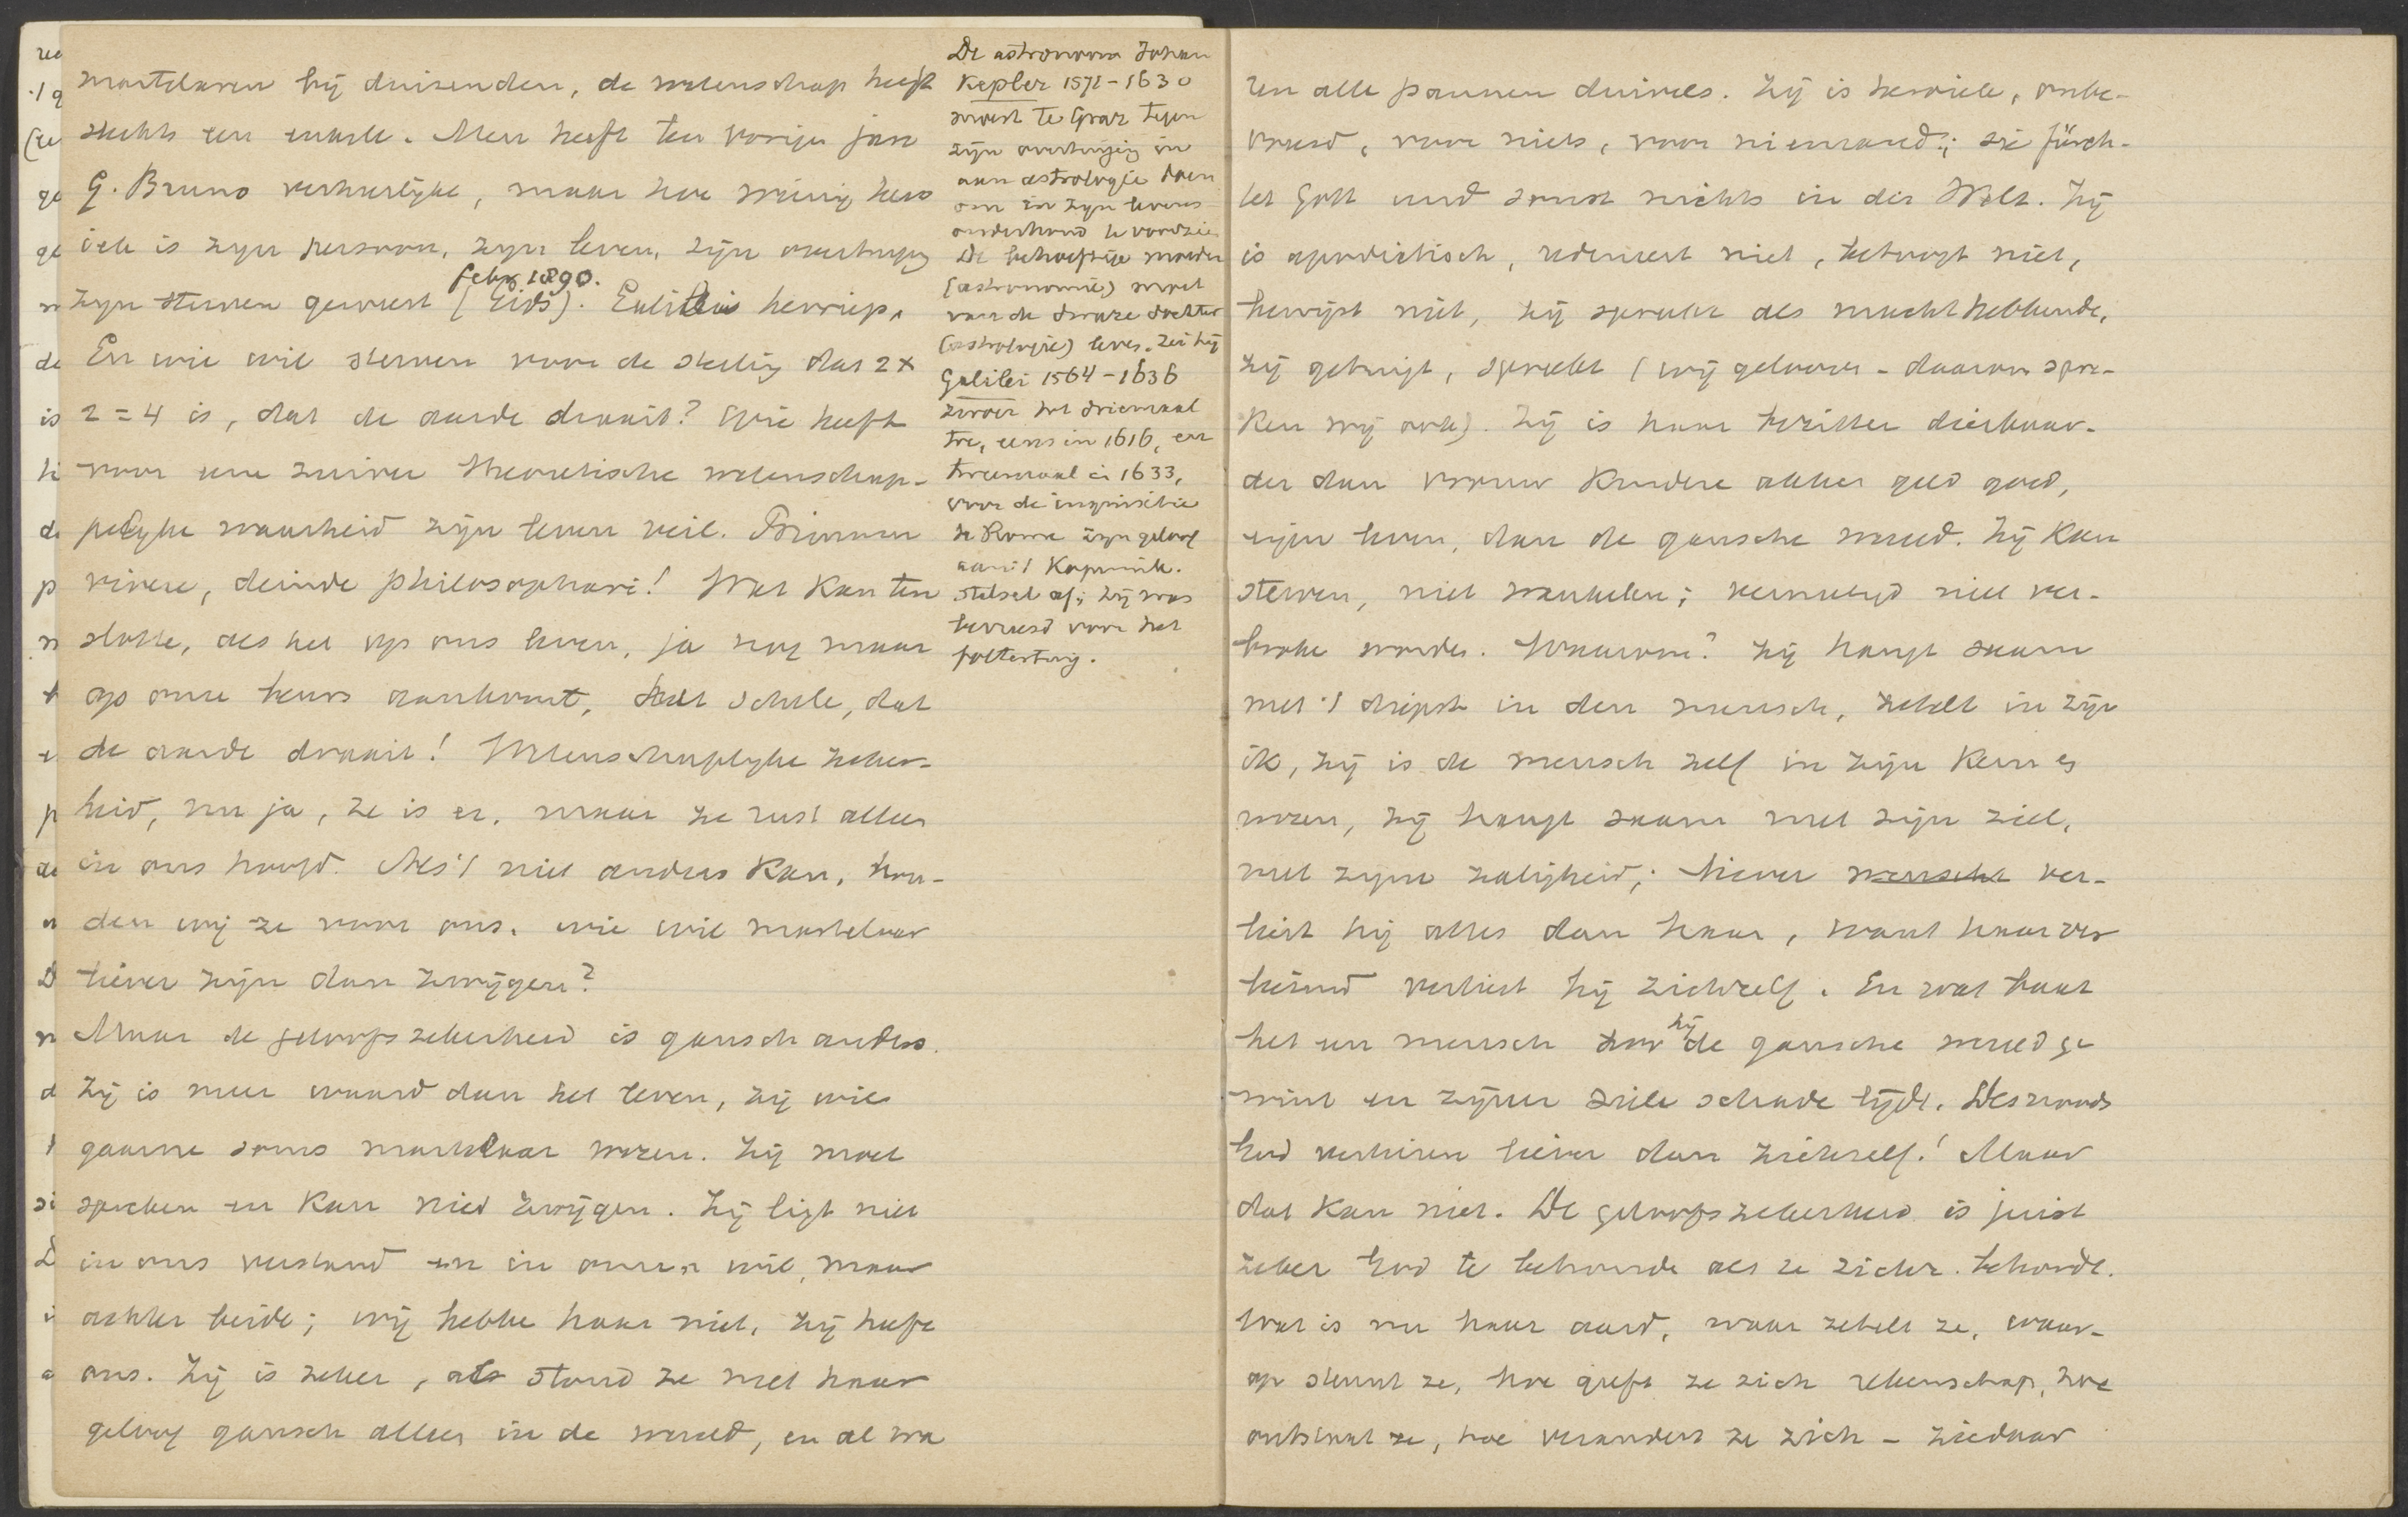 martelaren bij duizenden, de wetenschap heeft
slechts een enkele. Men heeft ten vorigen jare
G. Bruno verheerlijkt, maar hoe weinig hero
isch is zijn persoon, zijn leven, zijn overtuiging
febr. 1890.
zijn sterven geweest (Gids). Galileis herriep.
En wie wil sterven voor de stelling dat 2 x
2 = 4 is, dat de aarde draait? Wie heeft
voor eene zuiver theoretische wetenschap-
pelyke waarheid zijn leven veil. Primum
vivere, deinde philosophari! Wat kan ten
slotte, als het op ons leven, ja nog maar
op onze beurs aankomt, het schele, dat
de aarde draait! Wetenschaplyke zeker-
heid, nu ja, ze is er, maar ze rust alleen
in ons hoofd. Als 't niet anders kan, hou-
den wij ze voor ons. wie wil martelaar
liever zijn dan zwijgen?
Maar de geloofszekerheid is gansch anders.
Zij is meer waard dan het leven, zij wil
gaarne soms martelaar wezen. Zij moet
spreken en kan niet zwijgen. Zij ligt niet
in ons verstand en in onzen wil, maar
achter beide; wij hebbe haar niet, zij heeft
ons. Zij is zeker, als stond ze met haar
geloof gansch alleen in de wereld, en al wa
De astronoom Johan
Kepler 1571-1630
moest te Graz tegen
zijn overtuiging in
aan astrologie doen
om in zijn levens
onderhoud te voorzien
De behoeftige moeder
(astronomie) moet
van de dwaze dochter
(astrologie) leven. zei hij
Galilei 1564-1636
zwoer tot driemaal
toe, eens in 1616, en
tweemaal in 1633,
voor de inquisitie
te Rome zijn geloof
aan 't Kopernik.
stelsel af; hij was
bevreesd voor het
foltertuig.
ren alle pannen duivels. Zij is heroïek, onbe-
vreesd, voor niets, voor niemand; sie fürch-
tet Gott und sonst nichts in der Welt. Zij
is apodictisch, redeneert niet, betoogt niet,
bewijst niet, zij spreekt als macht hebbende,
zij getuigt, spreekt (wij gelooven - daarom spre-
ken wij ook). Zij is haar bezitter dierbaar-
der dan vrouw kindere akker geld goed,
eigen leven, dan de gansche wereld. Zij kan
sterven, niet wankelen; vernietigd niet ver-
broke worden. Waarom? Zij hangt saam
met 't diepst in den mensch, zetelt in zijn
ik, zij is de mensch zelf in zijn kern en
wezen, zij hangt saam met zijn ziel,
met zijne zaligheid; liever mensche ver-
liest hij alles dan haar, want haar ver
liezend verliest hij zichzelf. En wat baat
het een mensch zoo hij de gansche wereld ge
wint en zijner ziele schade lijdt. Desnoods
God verliezen liever dan zichzelf! Maar
dat kan niet. De geloofszekerheid is juist
zeker God te behoude als ze zichz. behoudt.
Wat is nu haar aard, waar zetelt ze, waar-
op steunt ze, hoe geeft ze zich rekenschap, hoe
ontstaat ze, hoe verandert ze zich - ziedaar